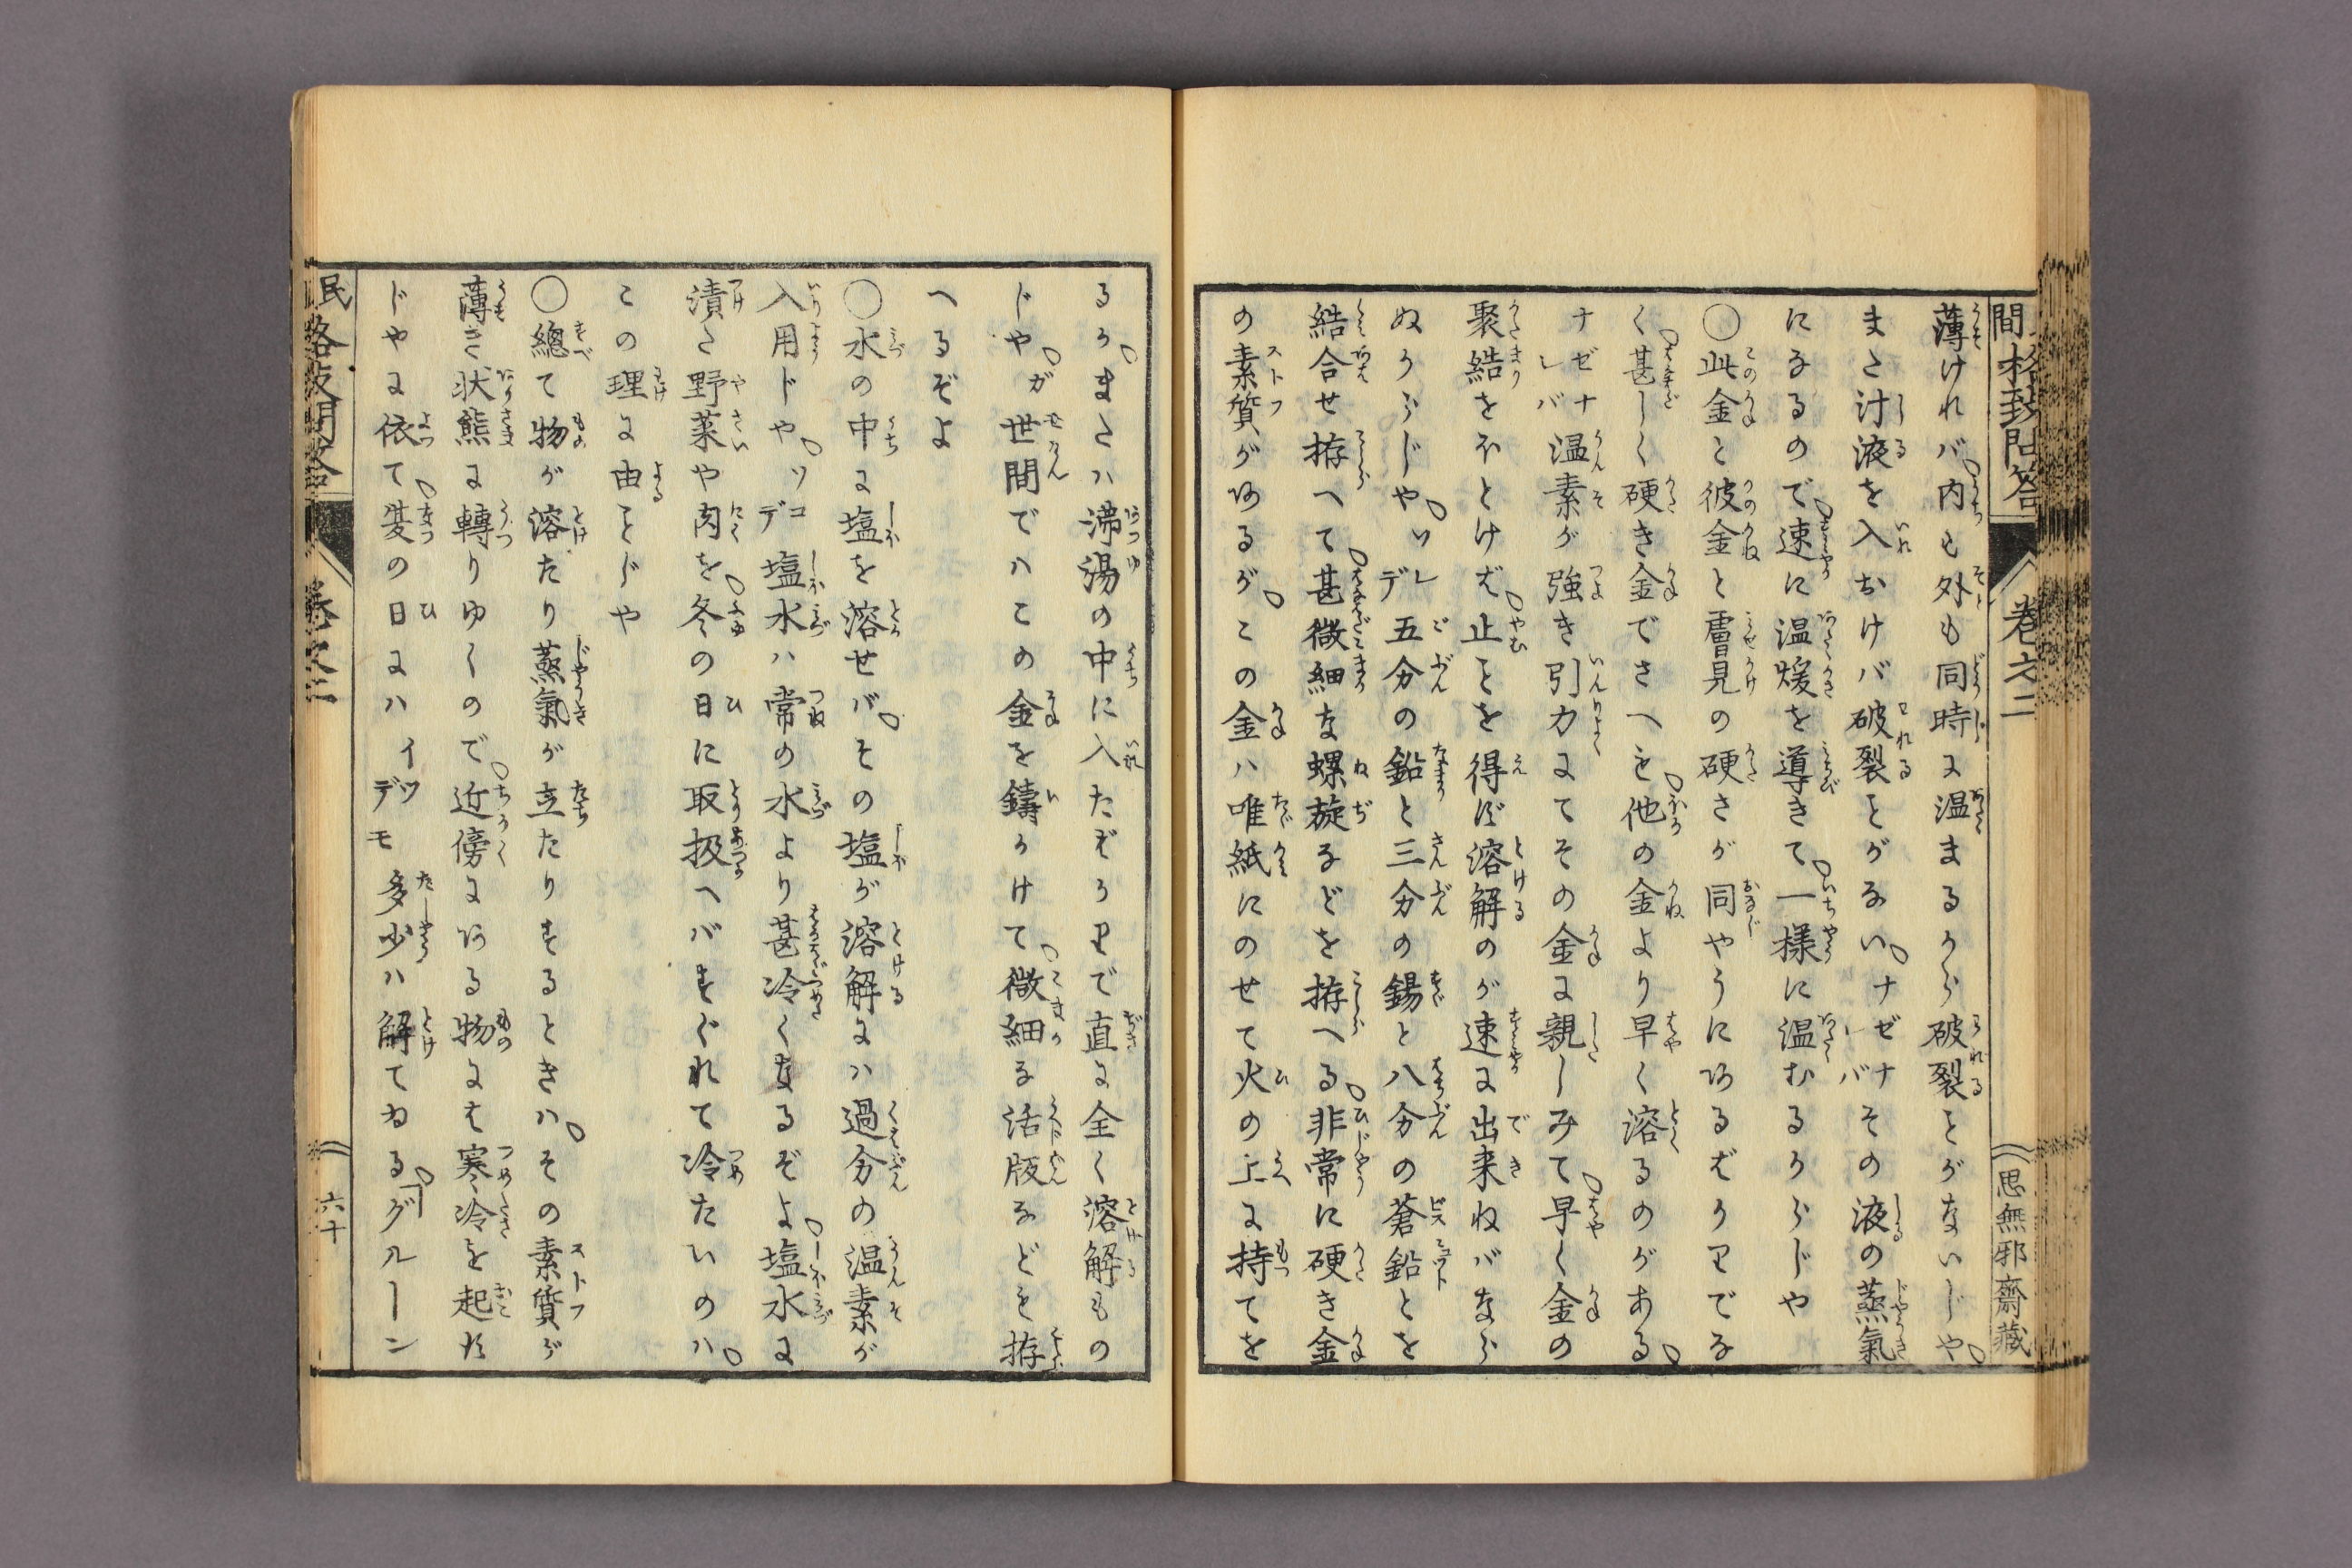 間格致問答 巻之二 思無邪齋藏
薄けれバ内も外も同時に温まるから破裂ことがないじや
また汁液を入おけバ破裂ことがないナゼナレバその液の蒸氣
になるので速に温煖を導きて一様に温むるからじや
〇此金と彼金と看見の硬さが同やうにあるばかりでな
く甚しく硬き金でさへも他の金より早く溶るのがある
ナゼナレバ温素が強き引力にてその金に親しみて早く金の
聚結をほとけば止ことを得ず溶解のが速に出来ねバなら
ぬからじやソレデ五分の鉛と三分の錫と八分の蒼鉛とを
結合せ拵へて甚微細な螺旋などを拵へる非常に硬き金
の素質があるがこの金ハ唯紙にのせて火の上に持てを
るかまたハ沸湯の中に入たばかりで直に全く溶解もの
じやガ世間でハこの金を鑄かけて微細な活版などを拵
へるぞよ
〇水の中に塩を溶せバその塩が溶解にハ過分の温素が
入用じやソコデ塩水ハ常の水より甚冷くなるぞよ塩水に
漬た野菜や肉を冬の日に取扱へバすぐれて冷たいのハ
この理に由ことじや
〇總て物が溶たり蒸氣が立たりするときハその素質が
薄き状態に轉りゆくので近傍にある物にも寒冷を起す
じやに依て夏の日にハイツデモ多少ハ解てゐる「グルーン
民格致問答 巻之二 六十